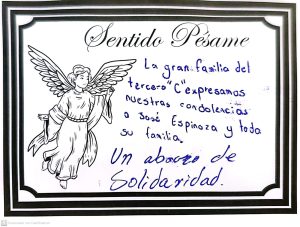 Sentido Pésame
La gran familia del
tercero "C" expresamos
nuestras condolencias
a José Espinoza y toda
su familia.
Un abrazo de
Solidaridad.